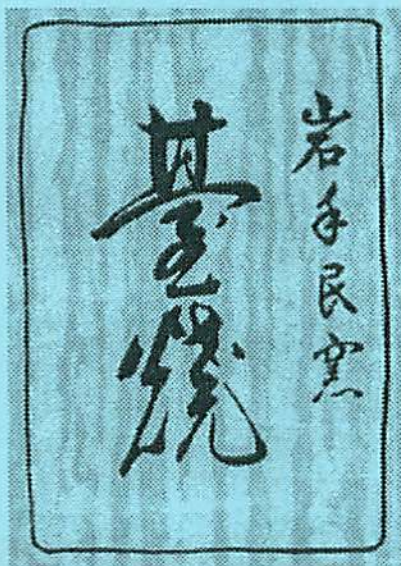 岩手民窯
臺焼